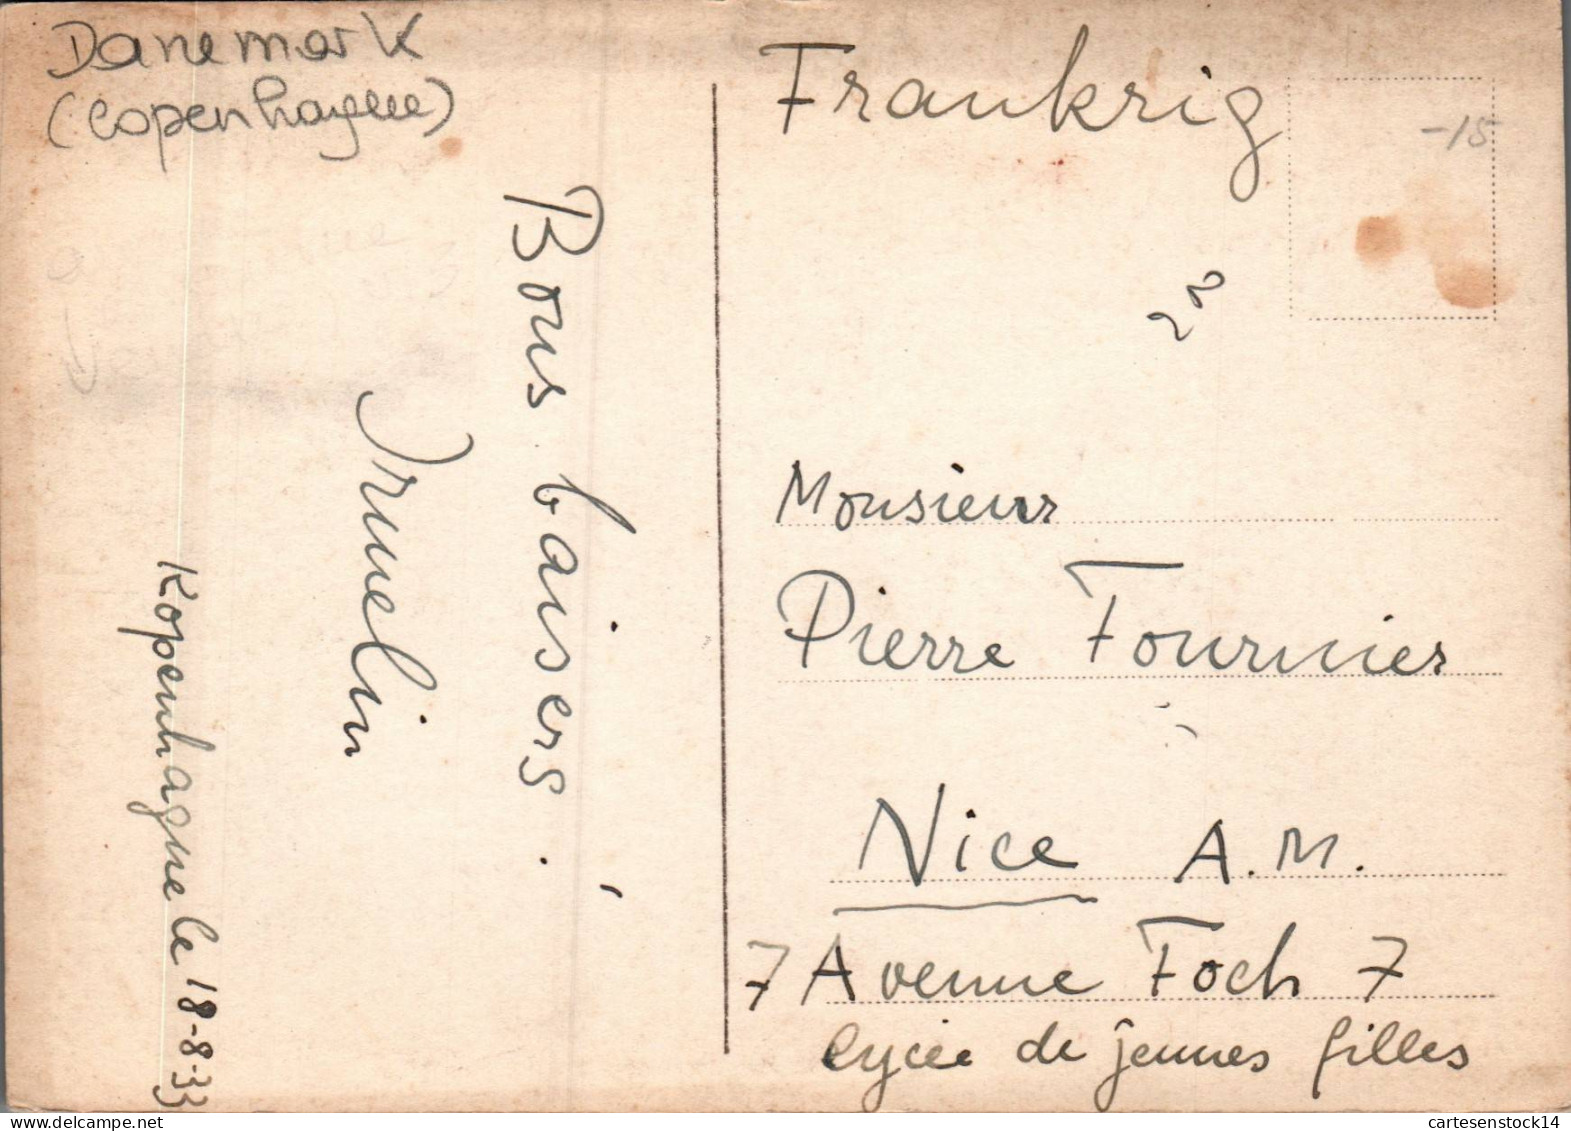 Danemark
(Copenhague)
Kopenhague le 18-8-33
Bons baisers.
Irmelin
Frankrig
-15
22
Monsieur
Pierre Fournier
Nice A.M.
7 Avenue Foch 7
lycée de jeunes filles
cartesenstock14